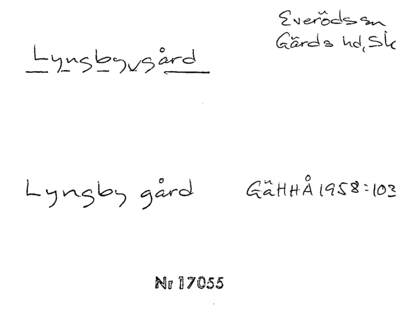 Everöds sn
Gärds hd, Sk
Lyngsbygård
Lyngsby gård GäHHÅ 1958:103
Nr 17055